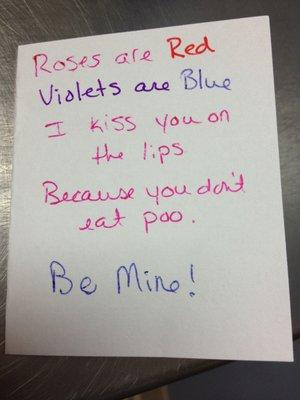 Roses are Red
Violets are Blue
I kiss you on
the lips
Because you don't
eat poo.
Be Mine!